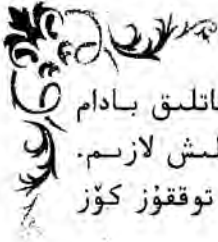 ـاتلىق بادام
ـلىش لازىم.
توققۇز كۆز